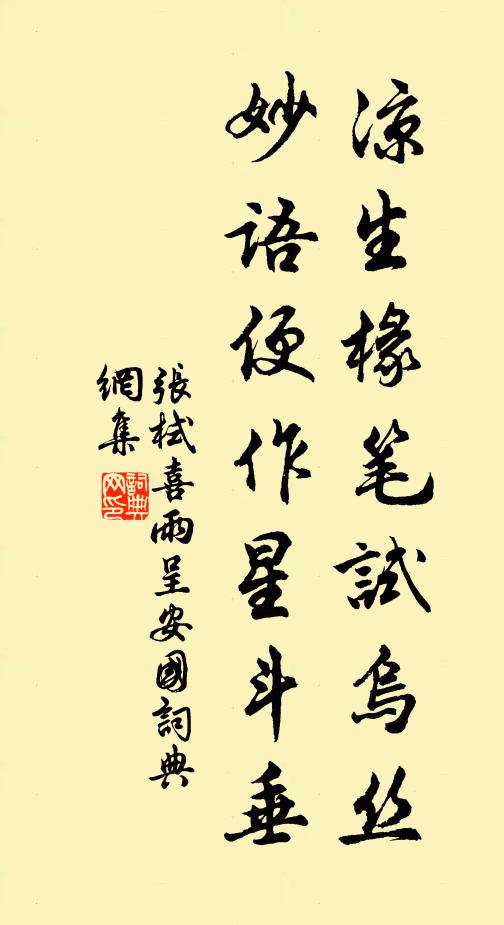 凉生椽笔試烏丝
妙語便作星斗垂
張栻喜雨呈安國詞典
網集
詞典
网印